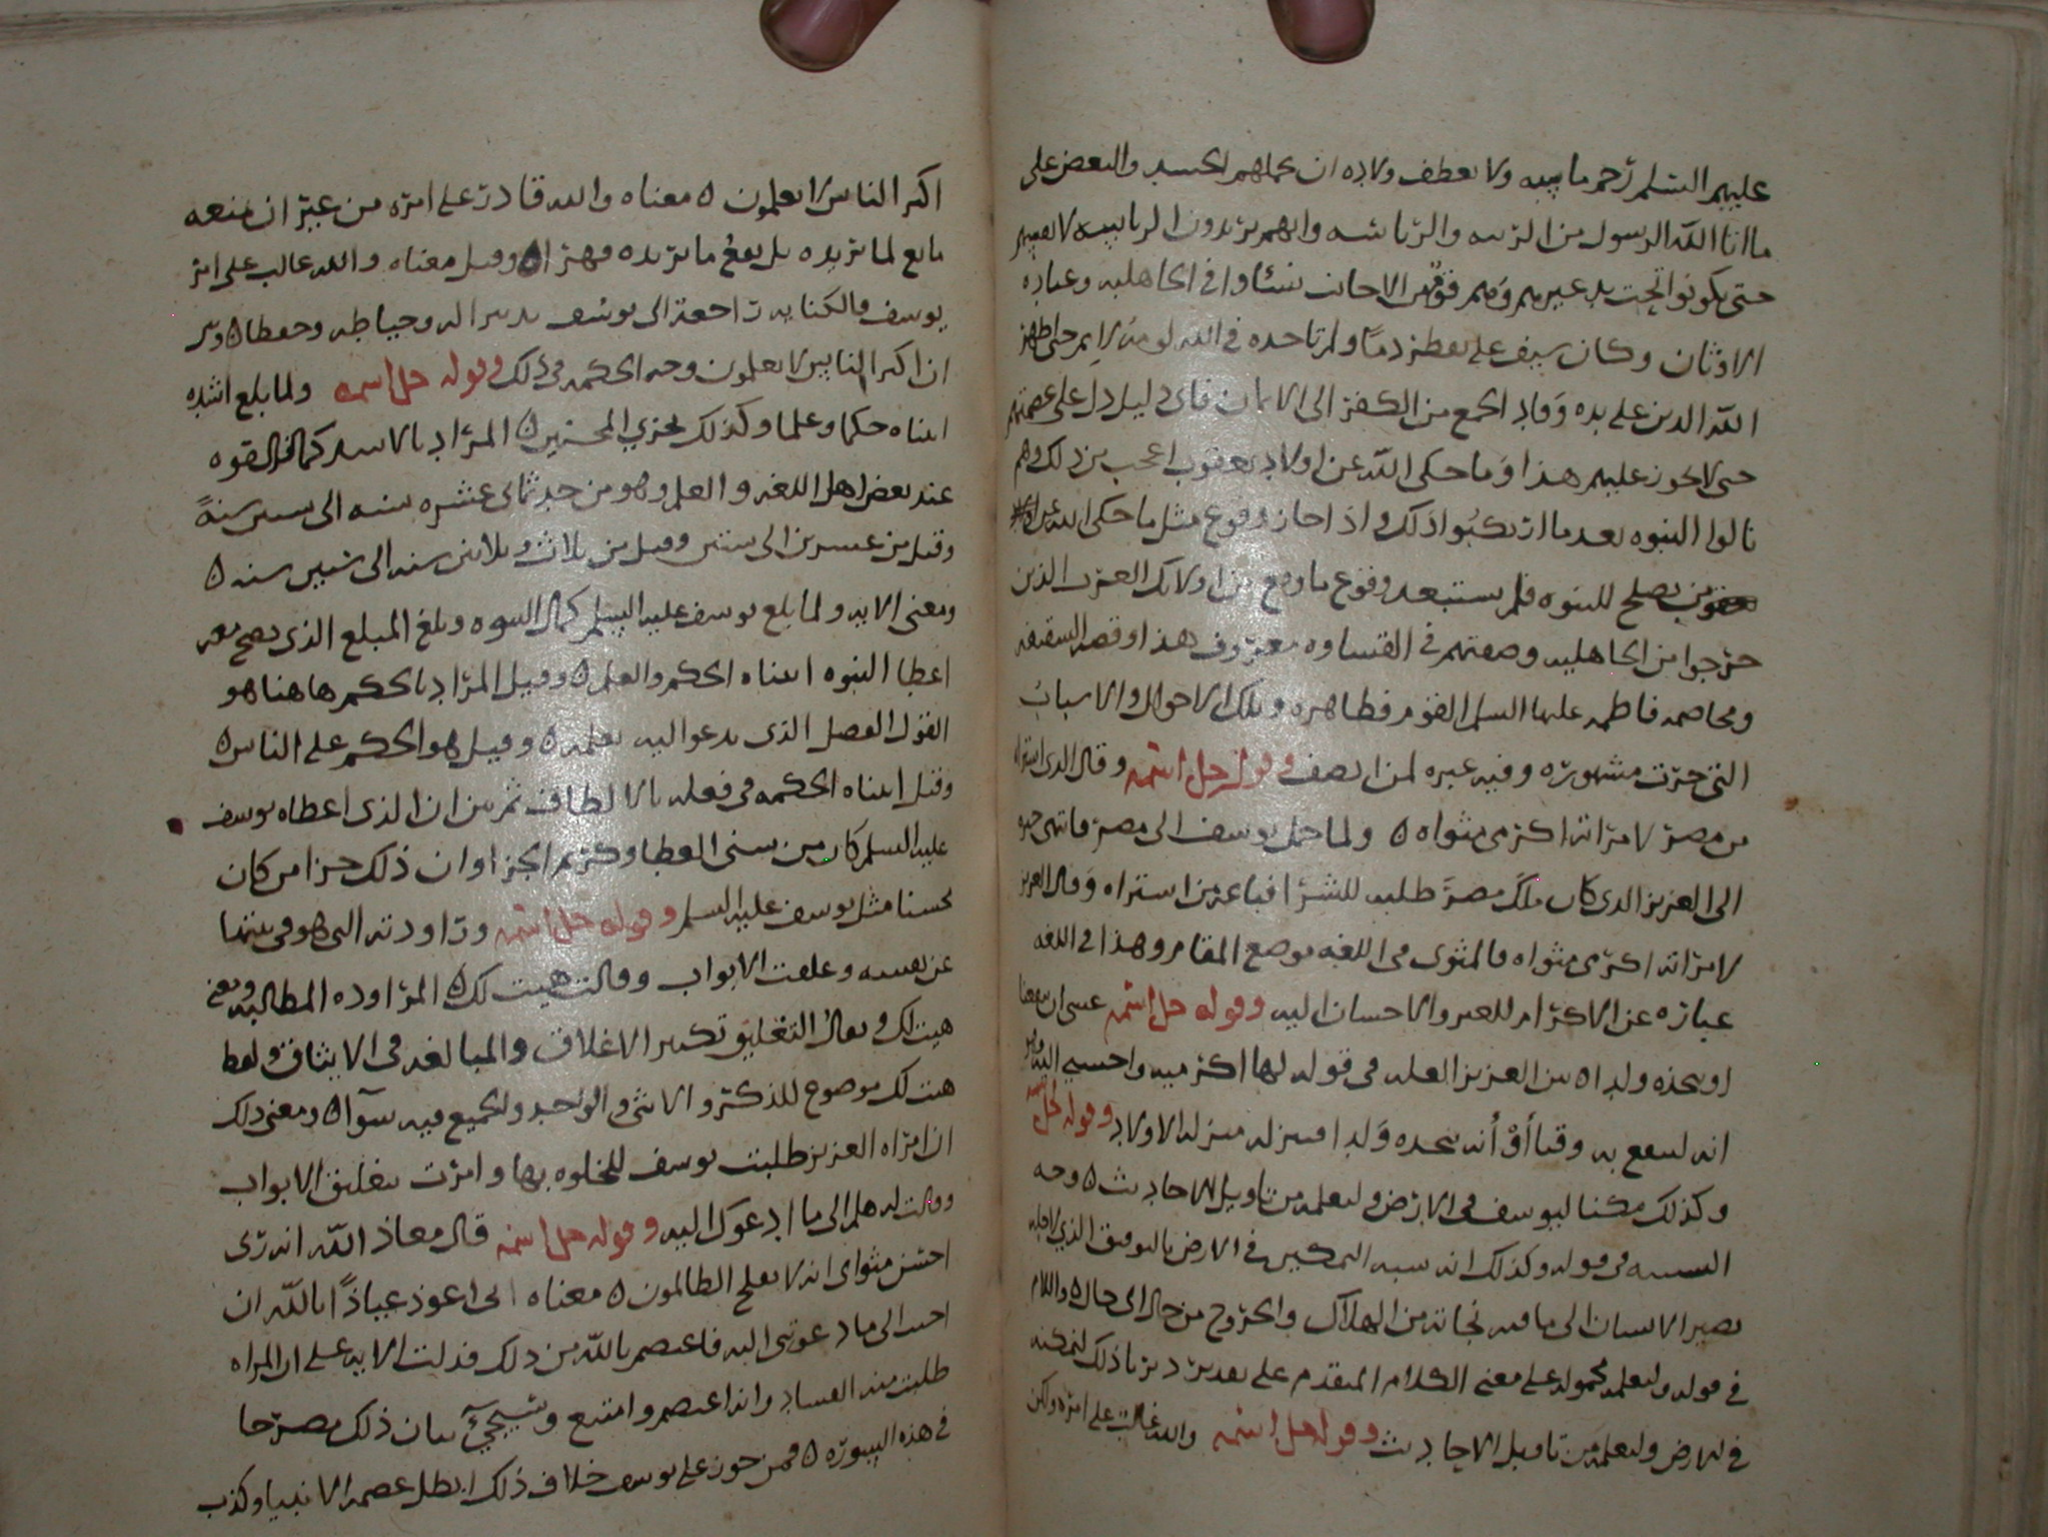 عليهم السلم رحم ماسه ولا تعطف ولاده ان حملهم الحسد والبغض على
ما اتا الله الرسول من الرتبه والرئاسه وانهم يريدون الرياسه لانفسهم
حتى يكونوا تحت يد غيرهم وهم فوقهم الاحانب نشاوا في الجاهليه وعباده
الاوثان وكان سيف علي يقطر دما ولم تاخده في الله لومة لايم حتى اظهر
الله الدين على يده وقاد الجمع من الكفر الى الايمان فاي دليل دل على عصمتهم
حتى لا يجوز عليهم هذا وما حكى الله عن اولاد يعقوب اعجب من ذلك وهم
نالوا النبوه بعد ما ارتكبوا ذلك واذا جاز وقوع مثل ما حكى الله عن
يصلح للنبوه فلم يستبعد وقوع ما وقع من اولايك العرب الذين
خرجوا من الجاهليه وصفتهم في القساوه معروف هذا وقصه السقيفه
ومخاصمه فاطمه عليها السلم القوم فظاهره وتلك الاحوال والاسباب
التي جرت مشهوره وفيه عبره لمن انصف وقوله جل اسمه وقال الذي اشتراه
من مصر لامراته اكرمي مثواه ٥ ولما حمل يوسف الى مصر فانتهى خبره
الى العزيز الذي كان ملك مصر طلبه للشرا فباعه من اشتراه وقال العزيز
لامراته اكرمي مثواه فالمثوى في اللغه موضع المقام وهذا في اللغه
عباره عن الاكرام للغير والاحسان اليه وقوله جل اسمه عسى ان ينفعنا
او نتخذه ولدا ٥ بين العزيز العله في قوله لها اكرميه واحسني اليه
انه لينتفع به وقتا أوْ أنه يتخده وَلدا فينزله منزله الاولاد وقوله جل اسمه
وكذلك مكنا ليوسف في الارض ولنعلمه من تاويل الاحاديث ٥ وجه
التشبيه في قوله وكذلك انه شبه التمكين في الارض بالتوفيق الذي لاجله
يصير الانسان الى ما فيه نجاته من الهلاك والخروج من حال الى حال ٥ واللام
في قوله ولنعلمه محموله على معنى الكلام المتقدم على تقدير دبرنا ذلك لنمكنه
في الارض ولنعلمه من تاويل الاحاديث وقوله جل اسمه والله غالب على امره ولكن
اكثر الناس لا يعلمون ٥ معناه والله قادر على امره من غير ان يمنعه
مانع لما يريده بل يقع ما يريده قهرا ٥ وقيل معناه والله غالب على امر
يوسف فالكنايه راجعة الى يوسف بدبر اليه وحياطه وحفظا ٥ وبين
ان اكثر الناس لا يعلمون وجه الحكمه في ذلك وقوله جل اسمه ولما بلغ اشده
اتيناه حكما وعلما وكذلك نجزي المحسنين ٥ المراد بالاشد كمال القوه
عند بعض اهل اللغه والعلم وهو من حد ثماني عشره سنه الى ستين سنةً
وقيل من عشرين الى ستين وقيل من ثلاث وثلاثين سنه الى ستين سنه ٥
ومعنى الايه ولما بلغ يوسف عليه السلم كمال النبوه وبلغ المبلغ الذي يصح معه
اعطا النبوه اتيناه الحكم والعلم ٥ وقيل المراد بالحكم هاهنا هو
القول الفصل الذي يدعو اليه تعلمه ٥ وقيل هو الحكم على الناس ٥
وقيل اتيناه الحكمه في فعله بالالطاف ثم بين ان الذي اعطاه يوسف
عليه السلم كان من سنى العطا وكريم الجزا وان ذلك جزا من كان
محسنا مثل يوسف عليه السلم وقوله جل اسمه وراودته التي هو في بيتها
عن نفسه وغلقت الابواب وقالت هيت لك ٥ المراوده المطالبه ومعنى
هيت لك وتعال التغليق تكثير الاغلاق والمبالغه في الايثاق ولفظ
هيت لك موضوع للذكر والانثى والواحد والجميع فيه سوآ ٥ ومعنى ذلك
ان امراه العزيز طلبت يوسف للخلوه بها وامرت بتغليق الابواب
وقالت له هلم الى ما ادعوك اليه وقوله جل اسمه قال معاذ الله انه ربي
احسن مثواي انه لا يفلح الظالمون ٥ معناه اني اعوذ عياذًا بالله ان
اجيب الى ما دعوتني اليه فاعتصم بالله من ذلك فدلت الايه على ان المراه
طلبت منه الفساد وانه اعتصم وامتنع وسيجئ بيان ذلك مصرحا
في هذه السوره ٥ فمن جوز على يوسف خلاف ذلك ابطل عصمه الانبيا وكذب